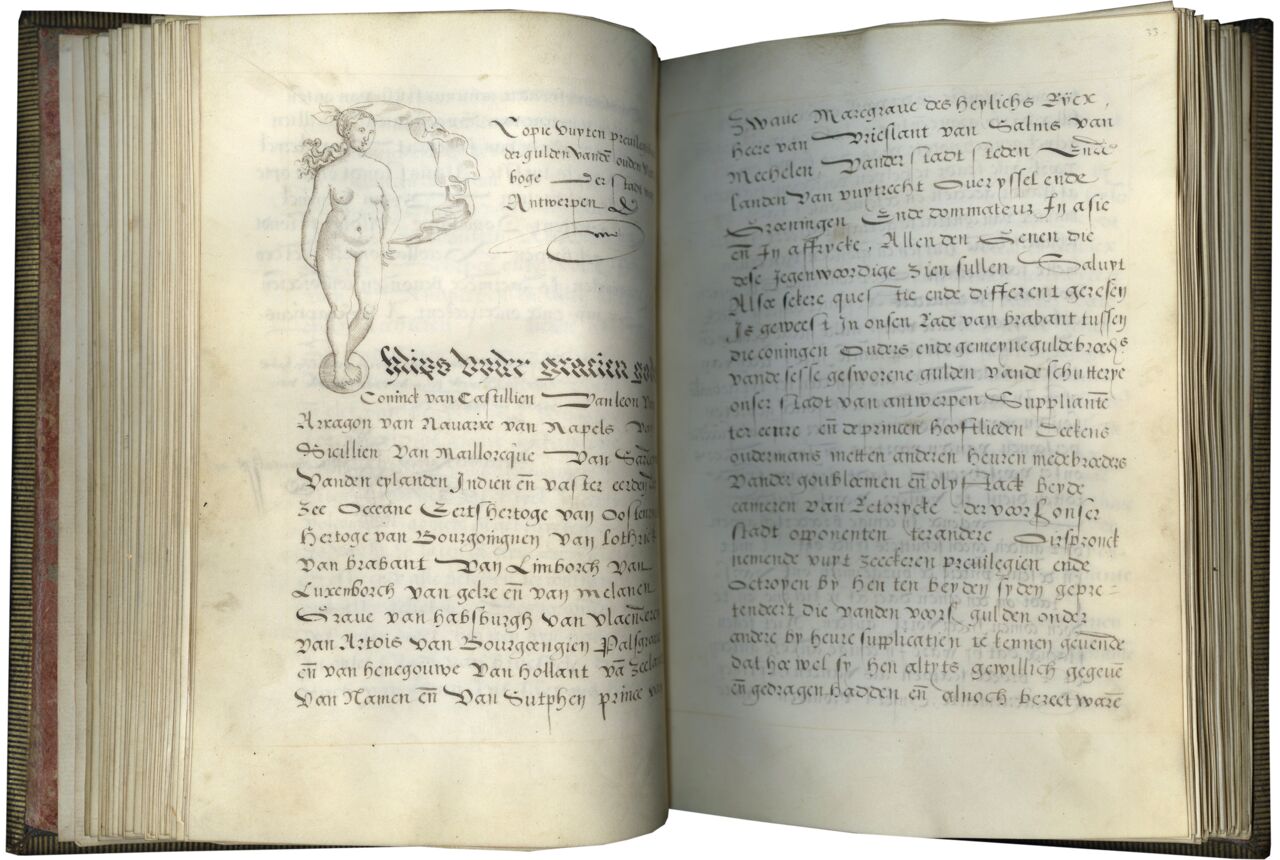 Copie vuyten previlegien
der gulden vandē ouden
boge Der stadt van
Antwerpen
hilips byder gracien gods
Coninck van Castillien Van leon Van
Arragon van Navarre van Napels Van
Sicillien Van Maillorcque Van Sardein
Vanden eylanden Indien eñ vaster eerden der
Zee Occeane Eertshertoge van Oostenryck
Hertoge van Bourgoingnen van Lothrick
Van brabant Van Limborch Van
Luxenborch van gelre eñ van Melanen
Grave van habsburgh van vlaenderen
van Artois van Bourgoengien Palsgrave
eñ van henegouwe Van Hollant vā Zeelant
Van Namen eñ Van Sutphen prince van
33
Zwave Marcgrave des Heylichs Rycx,
Heere van Vrieslant van Salins van
Mechelen, Vander stadt steden Ende
landen Van vuytrecht Overyssel ende
Groeningen Ende dommateur In asie
eñ In affrycke, Allen den Genen die
dese Jegenwoordige zien sullen Saluyt
Alsoe sekere questie ende different geresen
Is geweest In onsen Rade van brabant tussen
die coningen Ouders ende gemeyne guldebroeders
vande sesse gesworene gulden vande schutterye
onser stadt van antwerpen Suppliante
ter eenre eñ de princen hooftlieden Deekens
oudermans metten anderen heuren medebroeders
Vander goubloemen eñ olyftack beyde
cameren van Retorycke der voors onser
stadt opponenten terandere Oirspronck
nemende vuyt zeeckeren previlegien ende
Octroyen by hen ten beyden syden gepre=
tendeert die vanden voors gulden onder
andere by heure supplicatien te kennen gevende
dat hoe wel sy hen altyts gewillich gegevē
eñ gedragen hadden eñ alnoch bereet warē